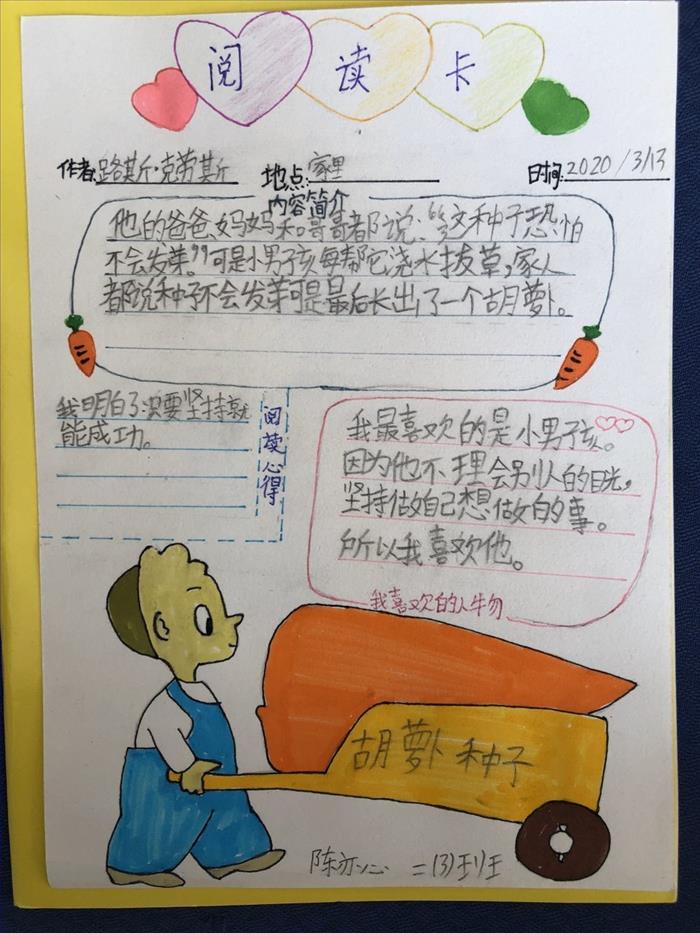 阅读卡
作者:路斯·克劳斯 地点:家里 时间:2020/3/13
内容简介
他的爸爸、妈妈和哥哥都说、“这种子恐怕
不会发芽。”可是小男孩每帮它浇水拔草,家人
都说种子不会发芽可是最后长出了一个胡萝卜。
我明白了:只要坚持就
能成功。
阅读心得
我最喜欢的是小男孩。
因为他不理会别人的目光,
坚持做自己想做的事。
所以我喜欢他。
我喜欢的人物
胡萝卜种子
陈亦心 二(3)班